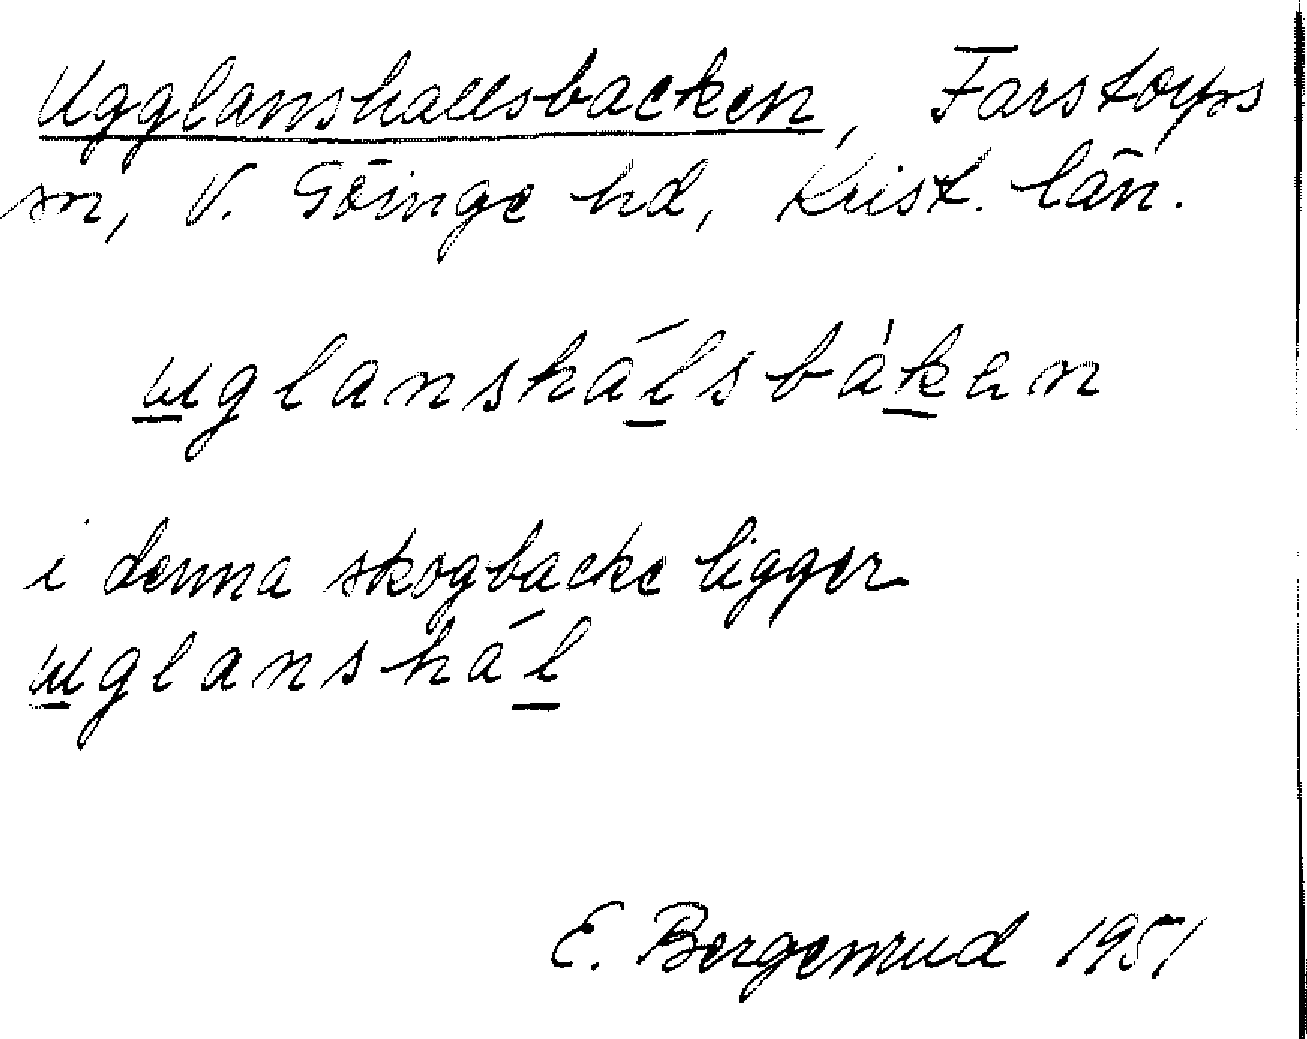 Ugglanshallsbacken, Farstorps
sn, V. Göinge hd, Krist. län.
uglanshálsbàkan
i denna skogbacke ligger
uglanshál
E. Bergenrud 1951